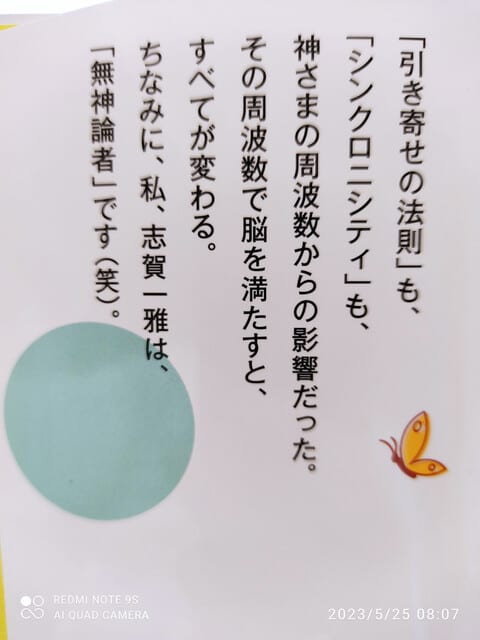 「引き寄せの法則」も、
「シンクロニシティ」も、
神さまの周波数からの影響だった。
その周波数で脳を満たすと、
すべてが変わる。
ちなみに、私、志賀一雅は、
「無神論者」です(笑)。
REDMI NOTE 9S
AI QUAD CAMERA
2023/5/25 08:07